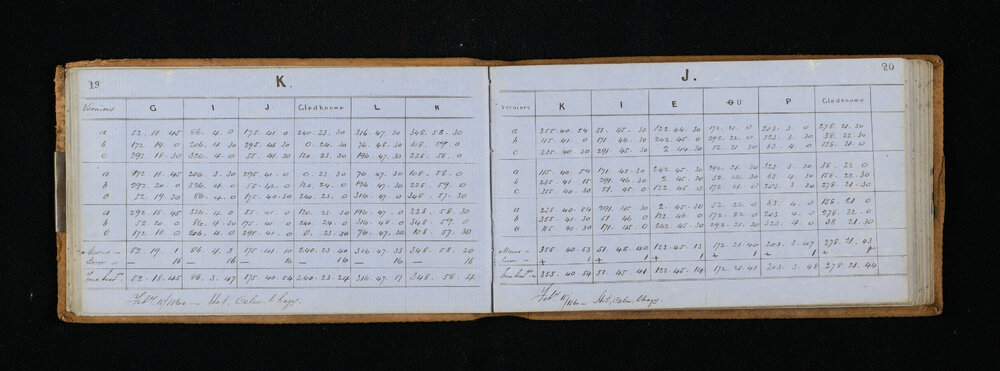 19
K.
Verniers G I J Gledknowe L H
a 52.18.45 86.4.0 175.41.0 240.23.30 316.47.30 348.58.30
b 172.19.0 206.4.30 295.41.30 0.24.30 76.48.30 108.59.0
c 292.18.30 326.4.0 55.41.30 120.23.30 196.47.30 228.58.0
a 172.18.45 206.3.30 295.41.0 0.23.30 76.47.30 108.58.0
b 292.20.0 326.4.0 55.42.0 120.24.0 196.47.30 228.59.0
c 52.19.30 86.4.0 175.40.30 240.23.30 316.47.0 348.57.30
a 292.18.45 326.4.0 55.41.0 120.23.30 196.47.0 228.58.30
b 52.20.0 86.4.30 175.41.0 240.24.0 316.48.0 348.59.0
c 172.18.0 206.4.0 295.41.0 0.23.30 76.47.30 108.57.30
Means 52.19.1 86.4.3 175.41.10 240.23.40 316.47.33 348.58.20
Error — 16 — 16 — 16 — 16 — 16 — 16
52.18.45 86.3.47 175.40.54 240.23.24 316.47.17 348.58.4
20
J.
Verniers K I E OU P Gledknowe
a 355.40.54 51.45.30 122.44.30 172.21.0 203.3.0 278.21.30
b 115.41.0 171.46.30 242.45.0 292.22.0 323.3.30 38.22.30
c 235.40.30 291.45.30 2.44.30 52.21.30 83.4.0 158.21.0
a 115.40.54 171.45.30 242.45.30 292.21.30 323.3.30 38.22.0
b 235.41.15 291.46.30 2.45.30 52.22.30 83.4.30 158.22.30
c 355.40.30 51.45.0 122.45.0 172.21.0 203.3.30 278.21.30
a 235.40.54 291.45.30 2.45.30 52.22.0 83.4.0 158.21.0
b 355.41.30 51.46.0 122.46.0 172.22.0 203.4.0 278.22.0
c 115.40.30 171.45.0 242.45.30 292.21.30 323.4.0 38.21.30
Means 355.40.53 51.45.40 122.45.13 172.21.40 203.3.47 278.21.43
Error + 1 + 1 + 1 + 1 + 1
355.40.54 51.45.41 122.45.14 172.21.41 203.3.48 278.21.44